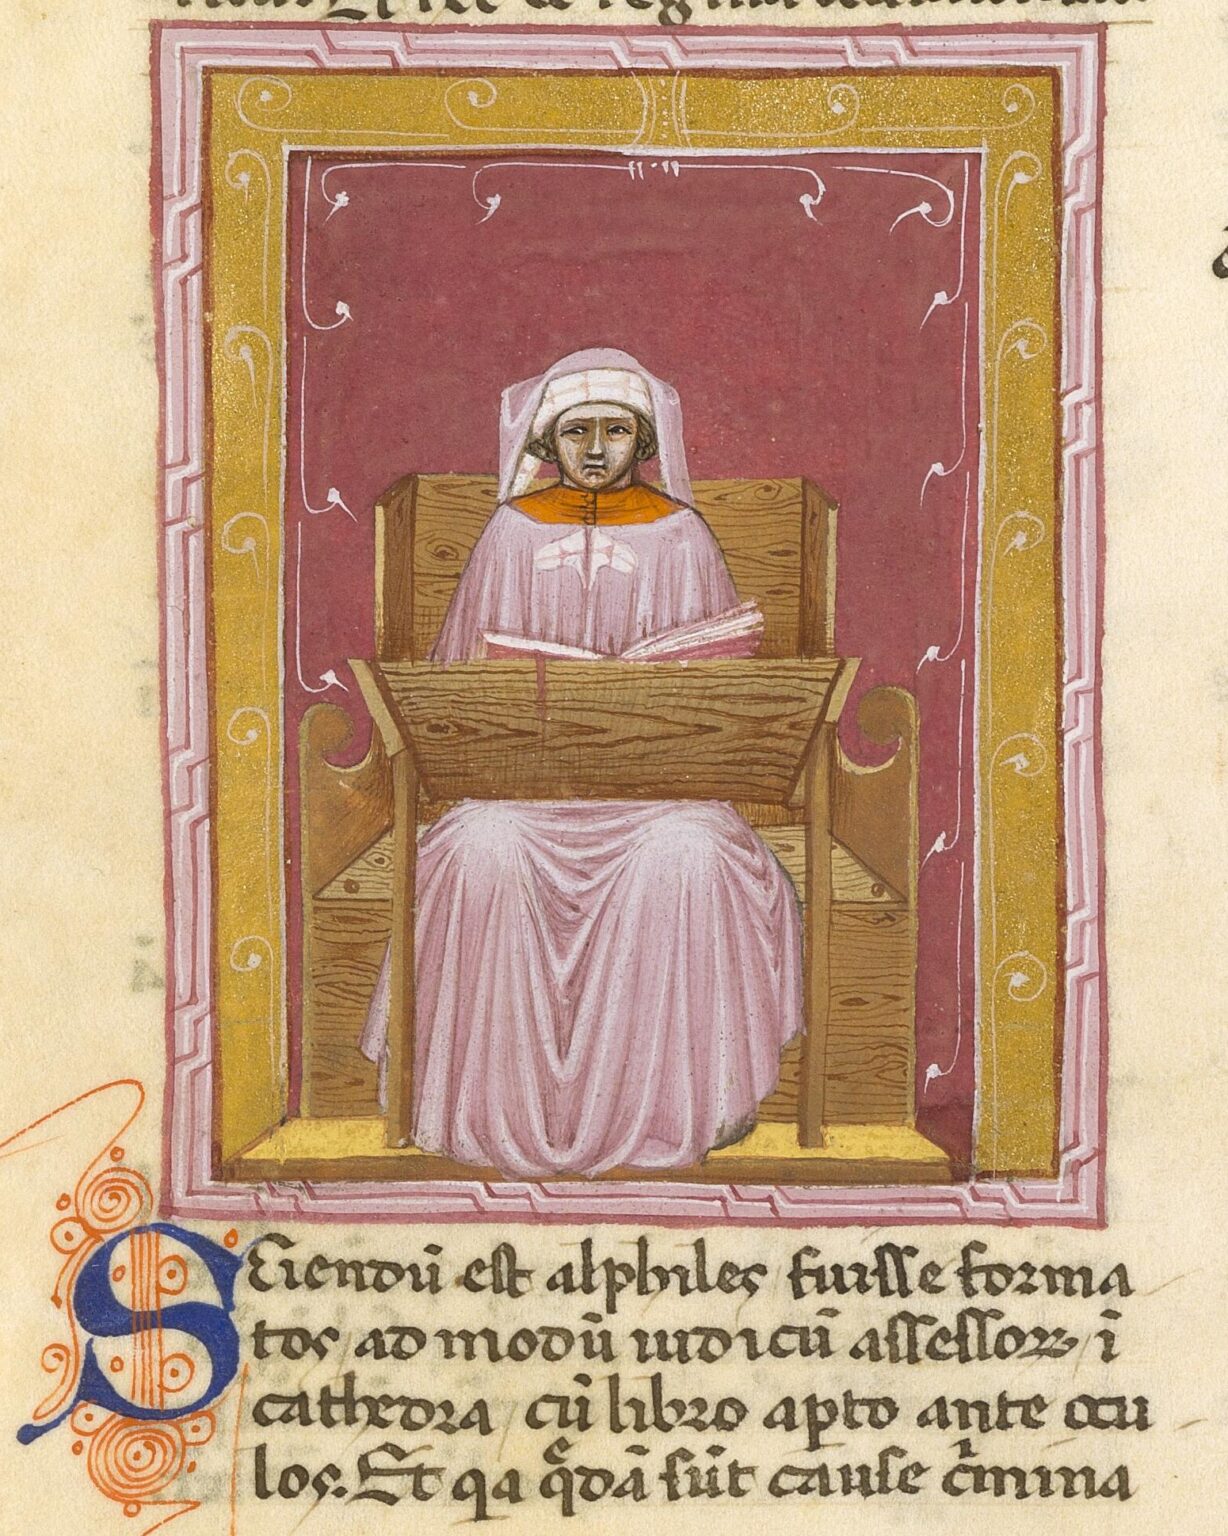 Sciendū est alphiles fuisse forma
tos ad modū iudicū assessoꝝ ī
cathedra cū libro apto ante ocu
los. Et qa q̄dā sūt cause c̄mina